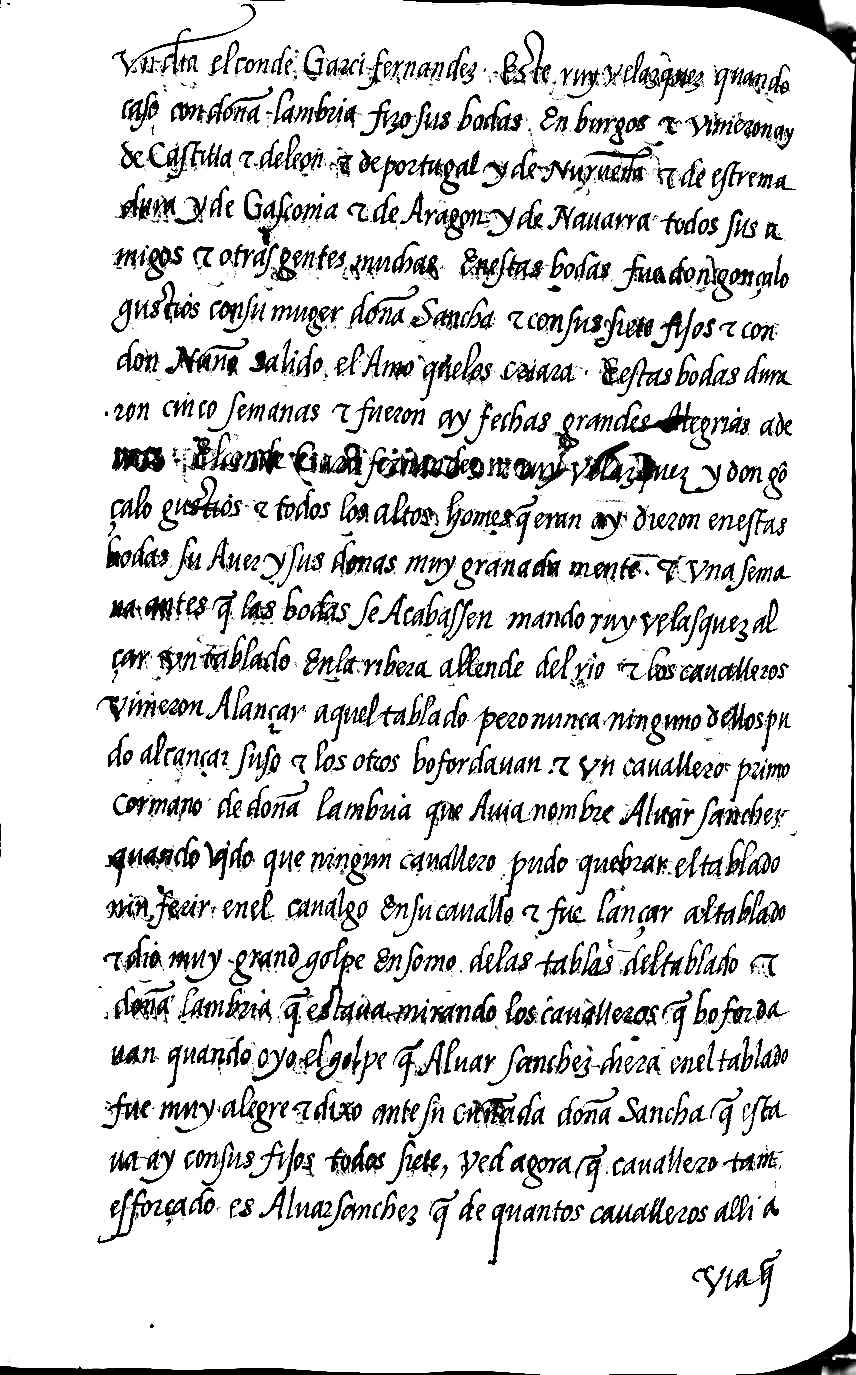 el conde Garci fernandez. Este ruy velazquez quando
caso con doña lambria fizo sus bodas En burgos & vinieron ay
de Castilla & de leon & de portugal y de & de estrema
dura y de Gasconia & de Aragon y de Nauarra todos sus a
migos & otras gentes muchas En estas bodas fue don gonçalo
gustios con su muger doña Sancha & con sus siete fijos & con
don Nuño Salido el Amo que los criara. E estas bodas dura
ron cinco semanas & fueron ay fechas grandes Alegrias ade
mas. El conde Garci fernandez ruy Velazquez y don gõ
çalo gustios & todos los altos homes q̃ eran ay dieron en estas
bodas su Auer y sus donas muy granada mente. & Vna sema
na antes q̃ las bodas se Acabassen mando ruy velasquez al
çar vn tablado En la ribera allende del rio & los caualleros
Vinieron A lançar aquel tablado pero nunca ninguno dellos pu
do alcançar suso & los otros bofordauan. & Vn cauallero primo
Cormano de doña lambria que Auia nombre Aluar sanchez
quando vido que ningun cauallero pudo quebrar el tablado
nin ferir en el caualgo En su cauallo & fue lançar al tablado
& dio muy grand golpe En somo de las tablas del tablado &
doña lambria q̃ estaua mirando los caualleros q̃ boforda
uan quando oyo el golpe q̃ Aluar sanchez diera en el tablado
fue muy alegre & dixo ante su cuñada doña Sancha q̃ esta
ua ay con sus fijos todos siete, Ved agora q̃ cauallero tam
esforçado es Aluar sanchez q̃ de quantos caualleros alli a
Via q̃